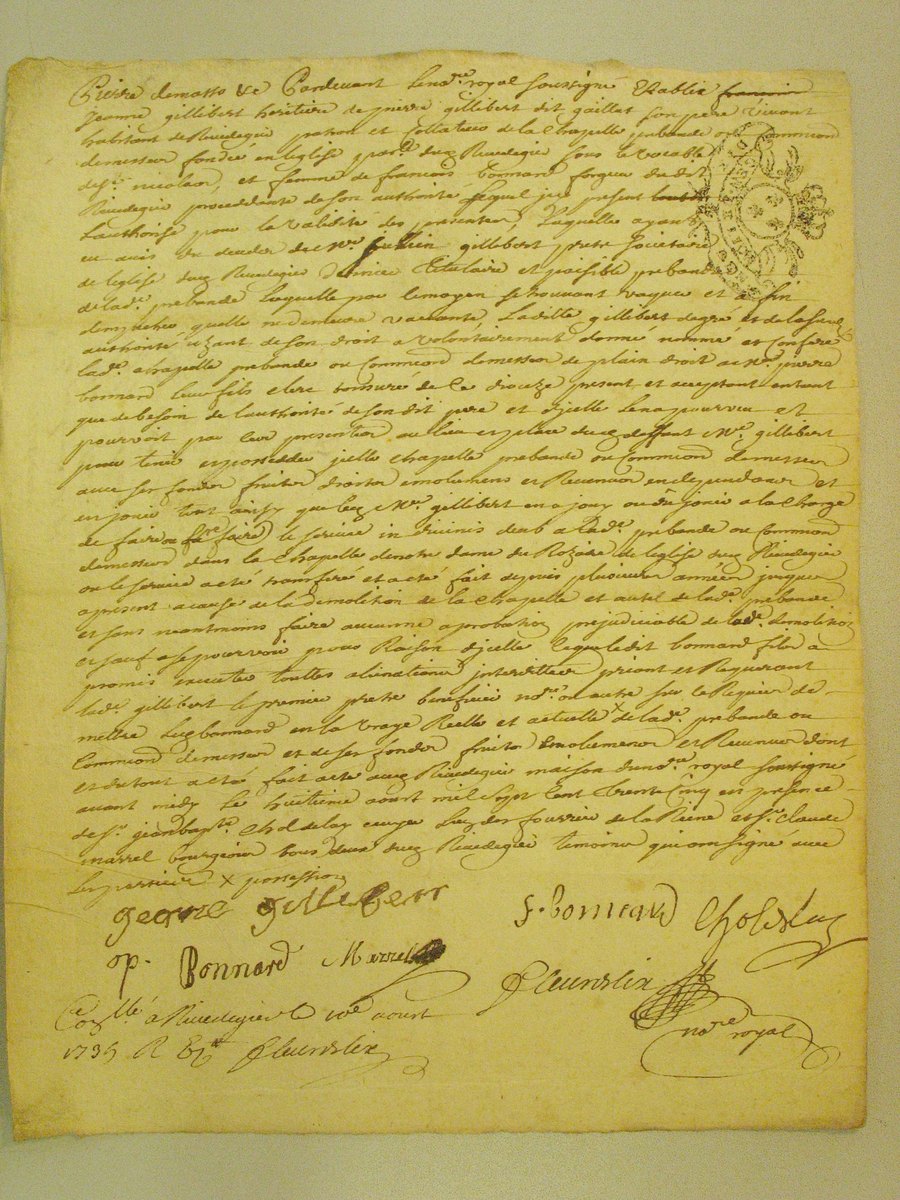 pardevant le no.re royal soussigné Establie francoise
jeanne gillibert heritiere de pierre gillibert dit gaillet son pere vivant
habitant de Rivedegier patron et collateur de la chapelle prebande ou Commiond
demesser fondée en leglise par.lle dud Rivedegier sous le vocable
de s.t nicolas, et femme de francois bonnard forgeur dudit
Rivedegier procedante de son authorité lequel icy present
Lauthorise pour la validité des presentes, Laquelle ayant
eu avis du deceder de M.re gillibert pretre societaire
de leglise dud Rivedegier dernier titulaire et paisible prebandier
de lad. prebande laquelle par le moyen se trouvant vaquer et afin
dempecher quelle ne demeure vacante, Ladite gillibert de gré et de la sud
authorité uzant de son droit a volontairement donné nommé et conferé
lad. chapelle prebande ou Commiond demesser de plain droit a M.re pierre
bonnard leur fils clerc tonsuré de ce dioceze present et acceptant entant
que de besoin de lauthorité de son dit pere et dicelle Lena pourveu et
pourvoit par leur presention au lieu et place dud deffunt M.re gillibert
pour tenir et posseder icelle chapelle prebande ou Commiond demesser
avec ses fonder fruiter droiter emolumens et Revenuer en dependans et
en jouir tout ainsy que led M.re gillibert en a jouy ou du jouir a la charge
de faire ou f.re faire le service in divinis deub a lad. prebande ou Commiond
demesser dans la chapelle de notre dame du Rozaire de leglise dud Rivedegier
ou le service a eté transferé et a eté fait depuis plusieurs année jusques
apresent a cause de la demolition de la chapelle et autel de lad. prebande
et sans neantmoins faire aucunne aprobation prejudiciable de lad.e demolition
et sauf a se pourvoir pour Raison dicelle lequel dit bonnard fils a
promis executer touttes alienations interditter priant et Requerant
lad. gillibert le premier pretre beneficier no.re ou autre sur ce Requier de
mettre led bonnard en la vraye Reelle et actuelle x de lad. prebande ou
Commiond demesser et de ses fonder fruits Emolumener et Revenuer dont
et du tout a eté fait acte aud Rivedegier maison du no.re royal soussigné
avant midy le huitieme aoust mil sept cent trente cinq en presence
de s.r jean bap.te chol delay ecuyer des fourrier de la Reine et s.r claude
marrel bourgeois tous deux dud Rivedegier temoins qui ont signé avec
les parties x possession
jeanne gillibert f. bonnard Choldelay
op. Bonnard Marrel
Fleurdelix
no.re royal
Con.llé a Rivedegier le 10e aoust
1735 R Fleurdelix